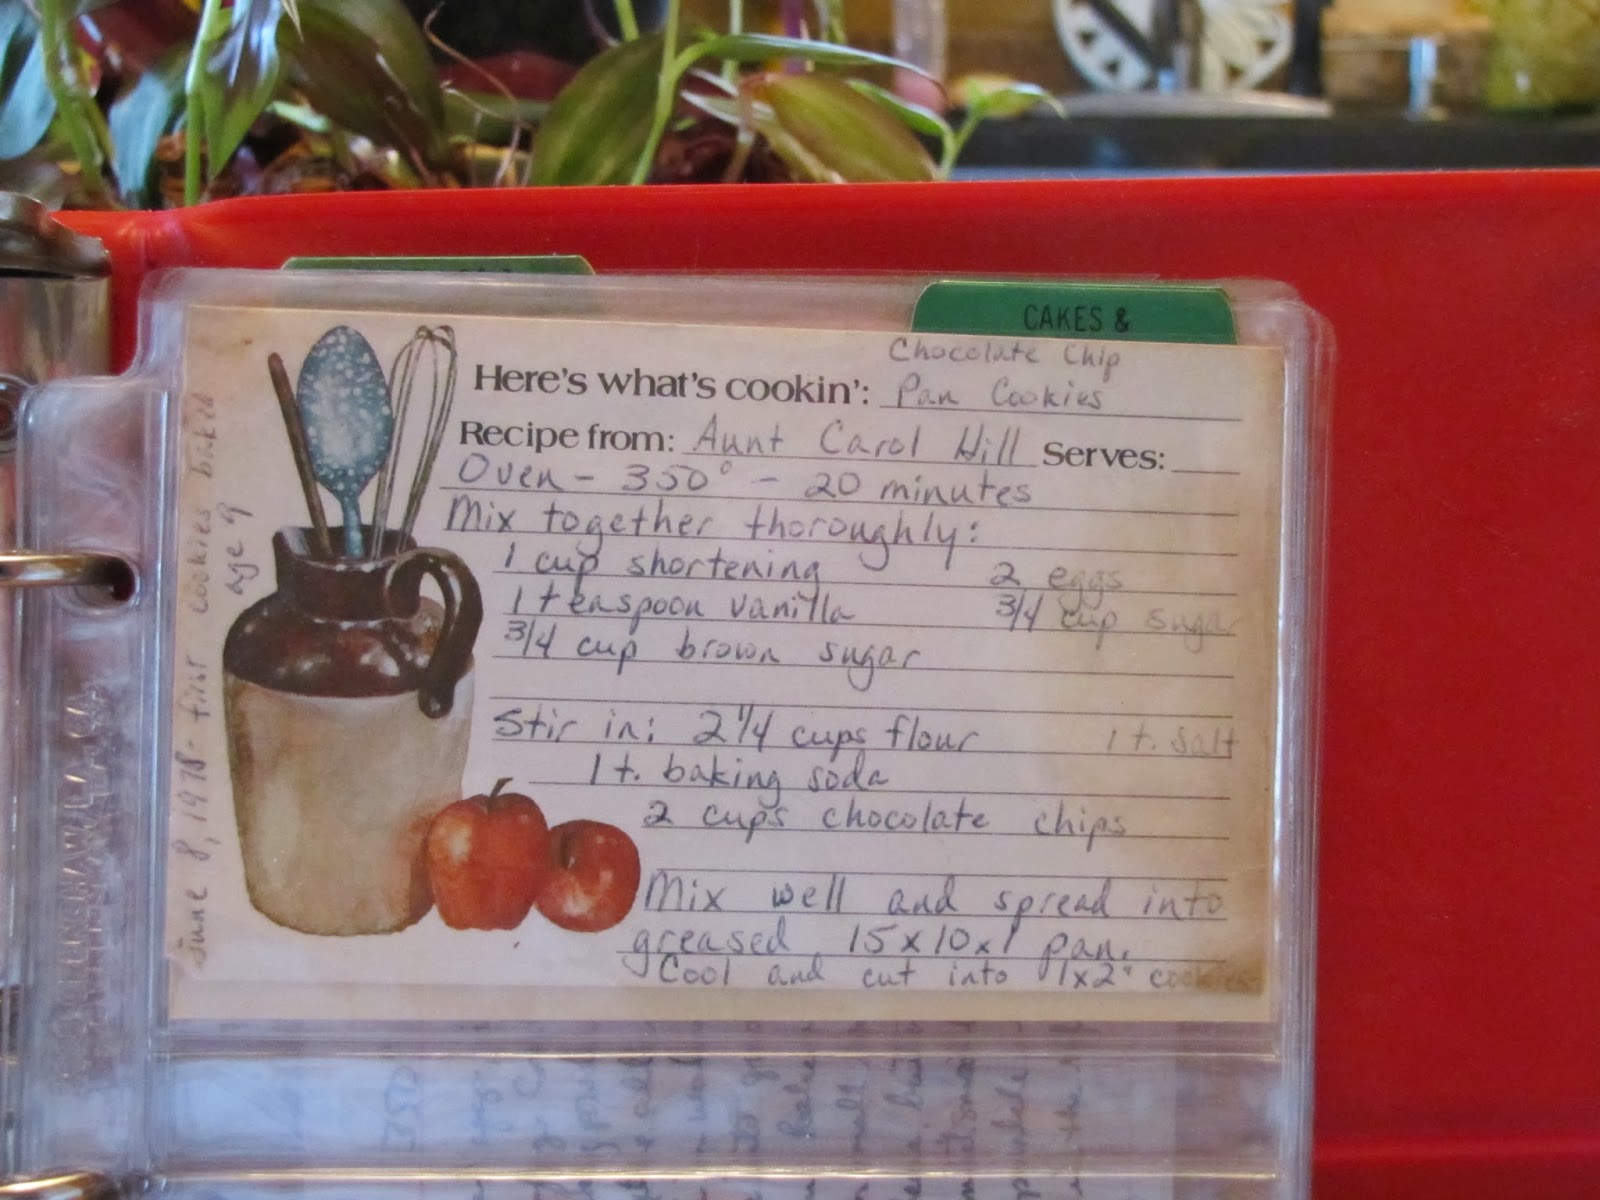 CAKES &
Chocolate Chip
Here's what's cookin': Pan Cookies
Recipe from: Aunt Carol Hill Serves:
Oven - 350° - 20 minutes
Mix together thoroughly:
1 cup shortening 2 eggs
1 teaspoon vanilla 3/4 cup sugar
3/4 cup brown sugar
Stir in: 2 1/4 cups flour 1 t. salt
1 t. baking soda
2 cups chocolate chips
Mix well and spread into
greased 15x10x1 pan.
Cool and cut into 1x2" cookies
June 8, 1978 - first cookies baked
age 9
350